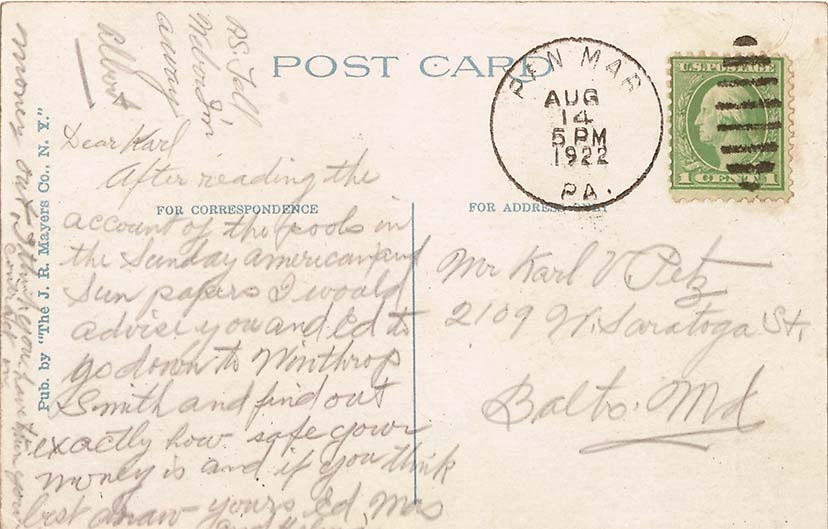 POST CARD
PEN MAR
AUG
14
5 PM
1922
PA.
U.S. POSTAGE
1 CENT 1
Pub. by "The J. R. Mayers Co., N. Y."
FOR CORRESPONDENCE
FOR ADDRESS ONLY
Dear Karl
After reading the
account of the pools in
the Sunday american and
Sun papers I would
advise you and Ed to
go down to Winthrop
Smith and find out
exactly how safe your
money is and if you think
best draw yours, Ed, Mas
and
money out
PS. Tell
I'm
away
Albert
Mr Karl V Petz
2109 W. Saratoga St.
Balto. Md